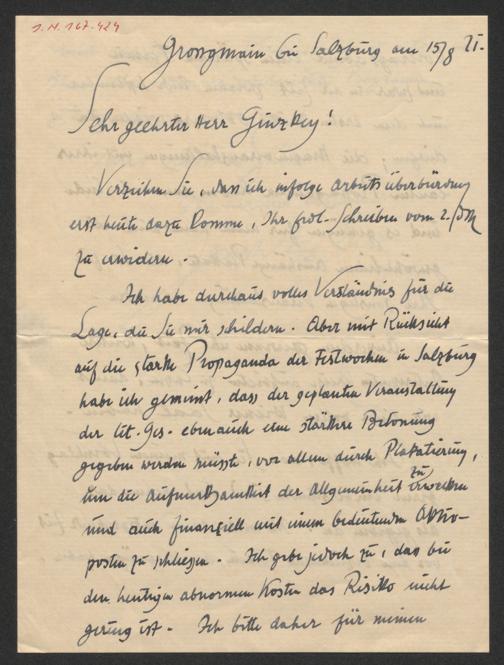 I.N. 167.424
Grossgmain bei Salzburg am 15/8 21.
Sehr geehrter Herr Ginzkey!
Verzeihen Sie, dass ich infolge Arbeitsüberbürdung
erst heute dazu komme, Ihr frdl. Schreiben vom 2./
zu erwidern.
Ich habe durchaus volles Verständnis für die
Lage, die Sie mir schildern. Aber mit Rücksicht
auf die starke Propaganda der Festwochen in Salzburg
habe ich gemeint, dass der geplanten Veranstaltung
der lit. Ges. eben auch eine stärkere Betonung
gegeben werden müsste, vor allem durch Plakatierung,
um die Aufmerksamkeit der Allgemeinheit zu erwecken
und auch finanziell mit einem bedeutenden Aktiv-
posten zu schliessen. Ich gebe jedoch zu, das bei
den heutigen abnormen Kosten das Risiko nicht
gering ist. Ich bitte daher für meinen